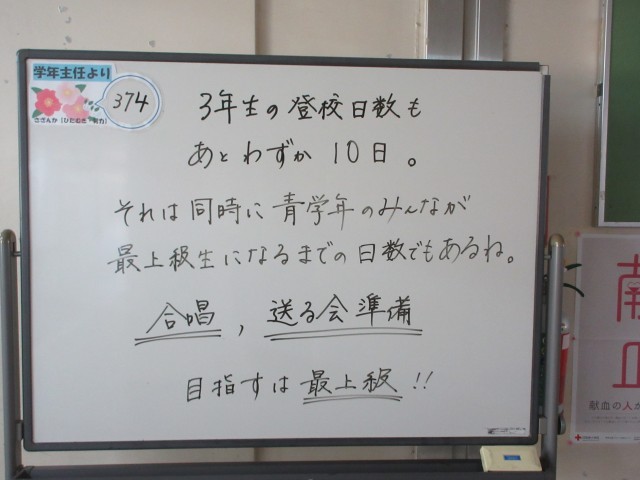 学年主任より
374
さざんか「ひたむき・努力」
3年生の登校日数も
あとわずか10日。
それは同時に青学年のみんなが
最上級生になるまでの日数でもあるね。
合唱,送る会準備
目指すは最上級!!
献血の人が